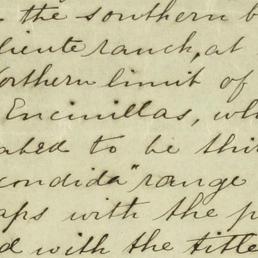 the southern b
liente ranch, at
orthern limit of
Encinillas, wh
ated to be thir
condida" range
aps with the p
d with the title